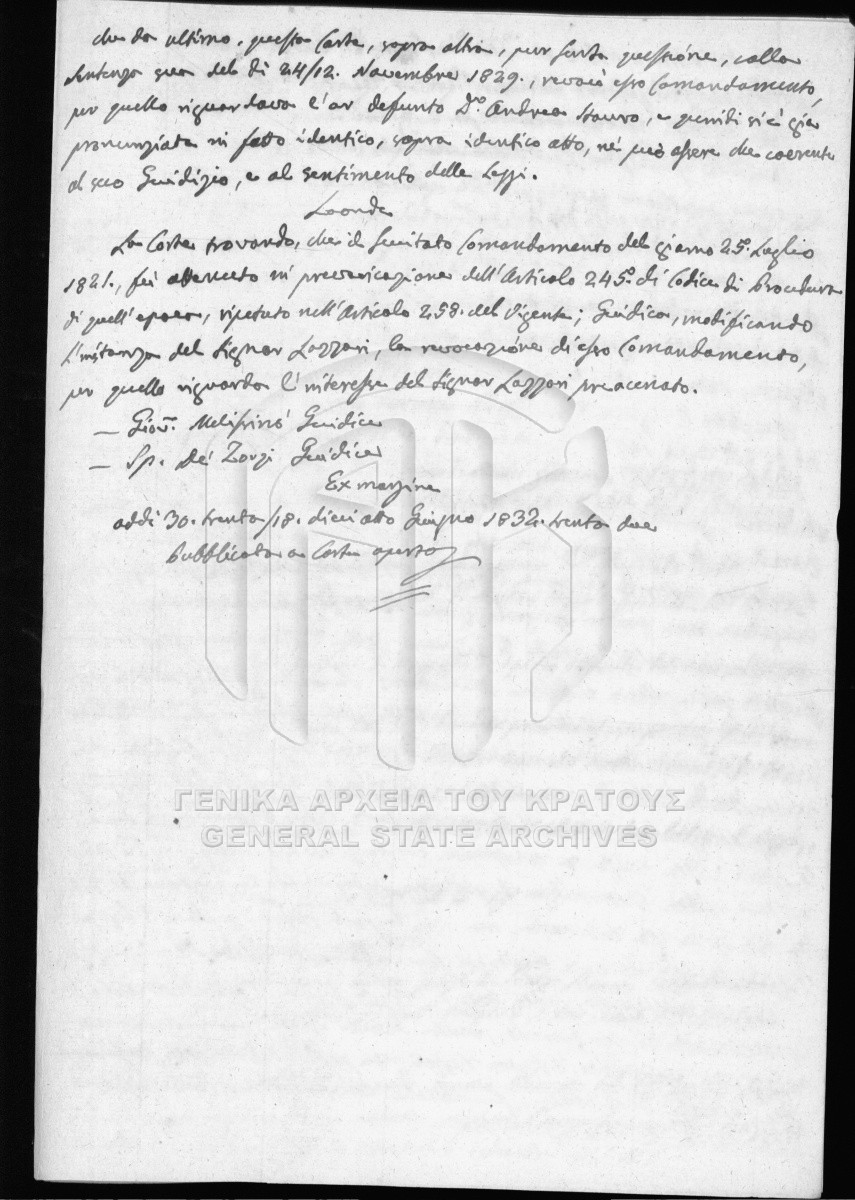 che da ultimo, questa Corte, sopra altra, pur questione, colla
Sentenza sua del dì 24/12. Novembre 1829., revocò esso Comandamento,
per quello riguardava l'or defunto Dr. Andrea Stauro, e quindi si è già
pronunziata in fatto identico, sopra identico atto, nè può essere che coerente
al suo Giudizio, e al sentimento delle Leggi.
Laonde
La Corte trovando, che il Comandamento del giorno 25. Luglio
1821., fu ottenuto in prevaricazione dell'Articolo 245. di Codice di Procedura
di quell'epoca, ripetuto nell'Articolo 258. del Vigente; Giudica, modificando
l'instanza del Signor Lazzari, la revocazione di esso Comandamento,
per quello riguarda l'interesse del Signor Lazzari preaccenato.
— Giov. Melissinò Giudice
— Sp. De Zorzi Giudice
Ex margine
addì 30. trenta/18. dieciotto Giugno 1832. trenta due
Pubblicata a Corte aperta
ΓΕΝΙΚΑ ΑΡΧΕΙΑ ΤΟΥ ΚΡΑΤΟΥΣ
GENERAL STATE ARCHIVES